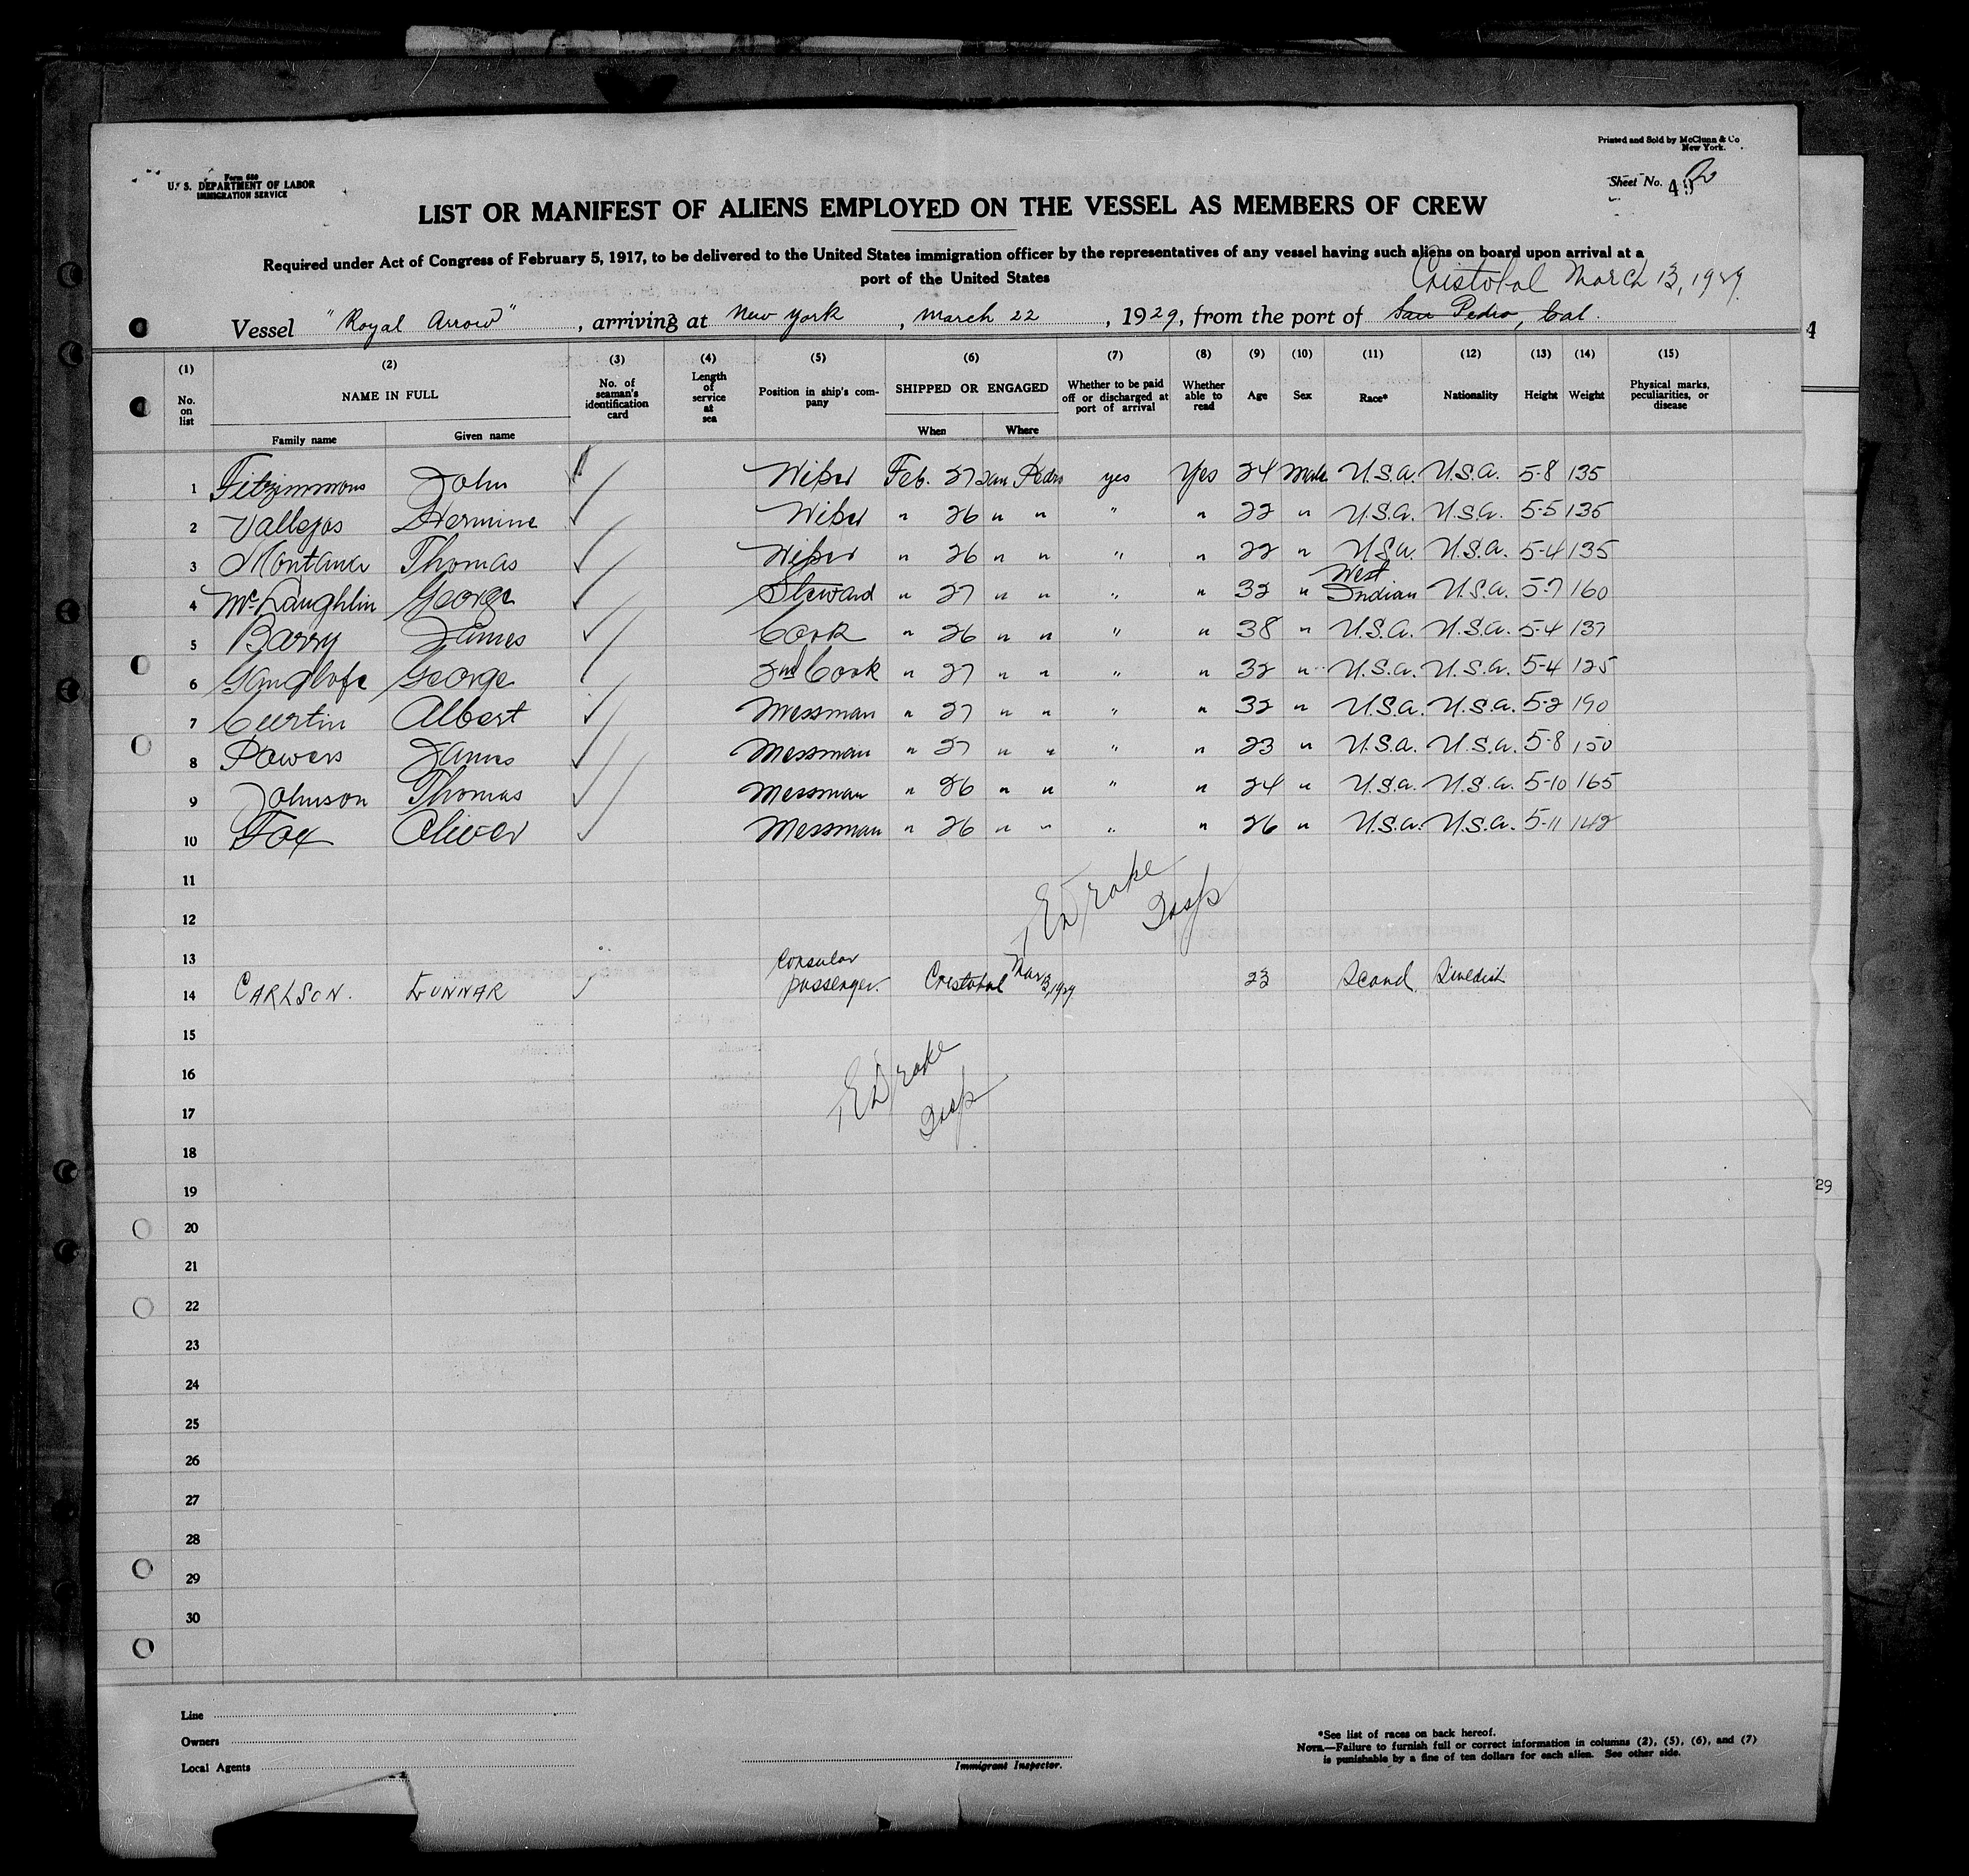 Printed and Sold by McClunn & Co
New York.
Form 680
U. S. DEPARTMENT OF LABOR
IMMIGRATION SERVICE
Sheet No.
LIST OR MANIFEST OF ALIENS EMPLOYED ON THE VESSEL AS MEMBERS OF CREW
Required under Act of Congress of February 5, 1917, to be delivered to the United States immigration officer by the representatives of any vessel having such aliens on board upon arrival at a
port of the United States
Cristobal March 13, 1929
Vessel "Royal Arrow", arriving at New York, March 22, 1929, from the port of San Pedro, Cal.
(1) (2) (3) (4) (5) (6) (7) (8) (9) (10) (11) (12) (13) (14) (15)
No. on list
NAME IN FULL
Family name Given name
No. of seaman's identification card
Length of service at sea
Position in ship's company
SHIPPED OR ENGAGED
When Where
Whether to be paid off or discharged at port of arrival
Whether able to read
Age
Sex
Race*
Nationality
Height
Weight
Physical marks, peculiarities, or disease
1 Fitzimmons John Wiper Feb. 27 San Pedro yes Yes 24 Male U.S.A. U.S.A. 5-8 135
2 Vallejos Hermine Wiper " 26 " " " " 22 " U.S.A. U.S.A. 5-5 135
3 Montana Thomas Wiper " 26 " " " " 22 " U.S.A. U.S.A. 5-4 135
4 McLaughlin George Steward " 27 " " " " 32 " West Indian U.S.A. 5-7 160
5 Barry James Cook " 26 " " " " 38 " U.S.A. U.S.A. 5-4 137
6 George 2nd Cook " 27 " " " " 32 " U.S.A. U.S.A. 5-4 125
7 Curtin Albert Messman " 27 " " " " 32 " U.S.A. U.S.A. 5-2 190
8 Powers James Messman " 27 " " " " 23 " U.S.A. U.S.A. 5-8 150
9 Johnson Thomas Messman " 26 " " " " 24 " U.S.A. U.S.A. 5-10 165
10 Fox Oliver Messman " 26 " " " " 26 " U.S.A. U.S.A. 5-11 142
11
EDrake
Insp
12
13
14 CARLSON. GUNNAR Consular passenger. Cristobal Mar 13, 1929 23 Scand. Swedish
15
16
EDrake
Insp
17
18
19
29
20
21
22
23
24
25
26
27
28
29
30
Line
Owners
Local Agents
Immigrant Inspector.
*See list of races on back hereof.
NOTE.—Failure to furnish full or correct information in columns (2), (5), (6), and (7)
is punishable by a fine of ten dollars for each alien. See other side.
4